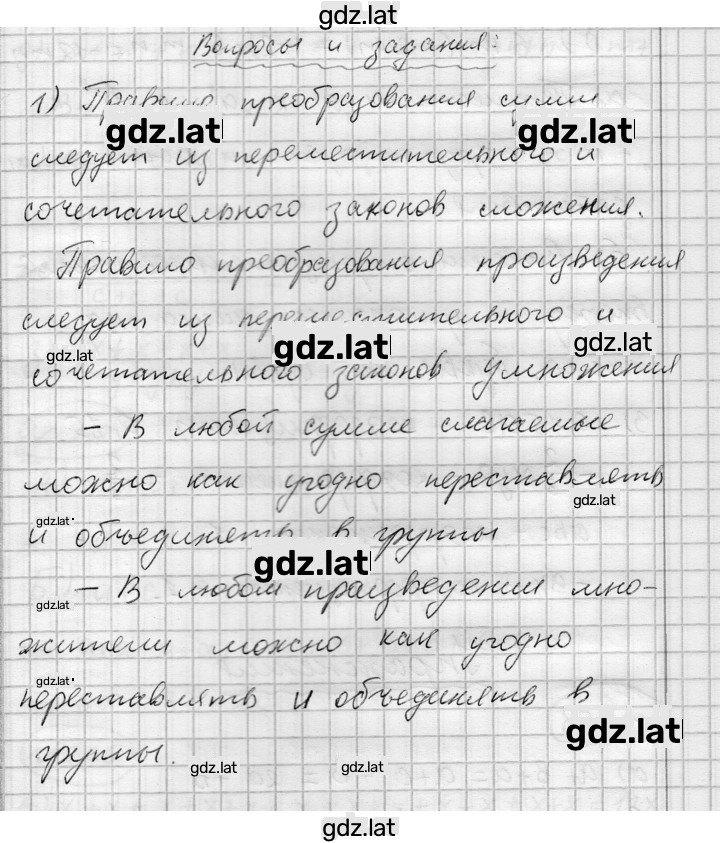 gdz.lat
Вопросы и задания:
1) Правило преобразования сумм
gdz.lat gdz.lat
следует из переместительного и
сочетательного законов сложения.
Правило преобразования произведения
следует из переместительного и
gdz.lat gdz.lat gdz.lat
сочетательного законов умножения
– В любой сумме слагаемые
можно как угодно переставлять
gdz.lat
gdz.lat
и объединять в группы
gdz.lat
– В любом произведении мно-
gdz.lat
жители можно как угодно
gdz.lat
переставлять и объединять в
gdz.lat
группы.
gdz.lat gdz.lat
gdz.lat